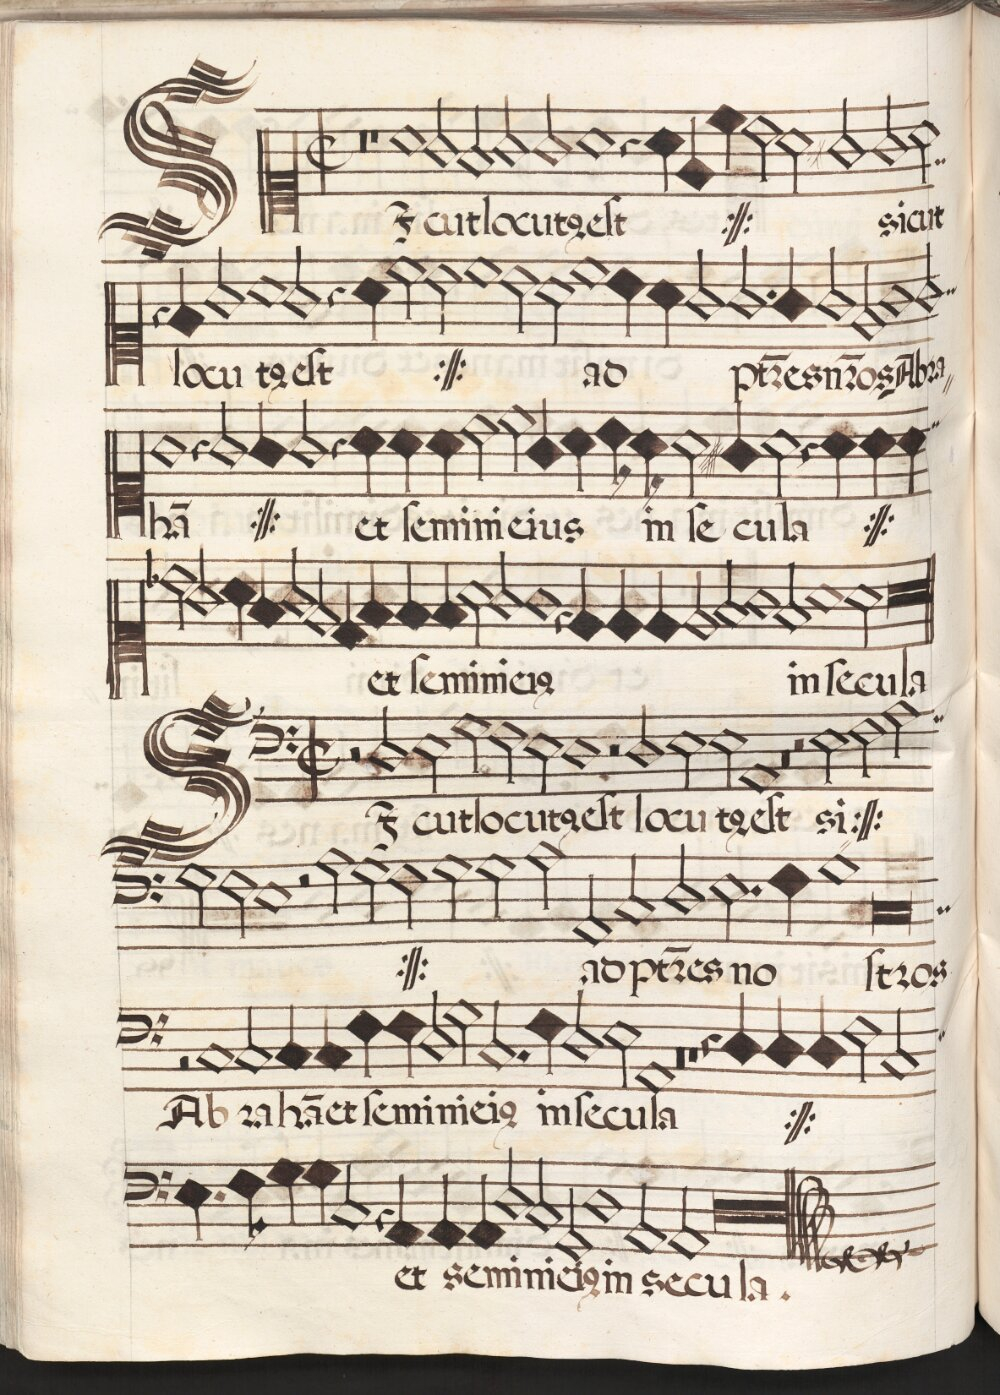 Sicut locutꝯ est :||: sicut
locutꝯ est :||: ad pt̄res nr̄os Abra
hā :||: et semini eius in secula :||:
et semini eiꝯ in secula
Sicut locutꝯ est locutꝯ est si :||:
:||: ad pt̄res nostros
Abrahā et semini eiꝯ in secula :||:
et semini eiꝯ in secula.